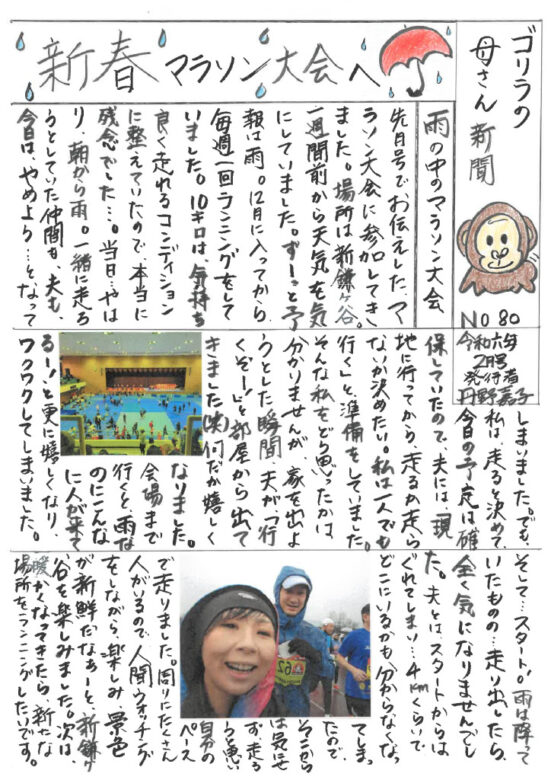 ゴリラの
母さん新聞
NO 80
令和六年
2月号
発行者
新春マラソン大会へ
雨の中のマラソン大会
先月号でお伝えした、マ
ラソン大会に参加してき
ました。場所は新鎌ヶ谷。
一週間前から天気を気
にしていました。ずーっと予
報は雨。12月に入ってから、
毎週一回ランニングをして
いました。10キロは、気持ち
良く走れるコンディション
に整えていたので、本当に
残念でした…。当日…やは
り、朝から雨。一緒に走ろ
うとしていた仲間も、夫も、
今日は、やめよう…となって
しまいました。でも、
私は、走ると決めて、
今日の予定は確
保していたので、夫には、「現
地に行ってから、走るか走ら
ないか決めたい。私は一人でも
行く」と準備をしていました。
そんな私をどう思ったかは、
分かりませんが、家を出よ
うとした瞬間、夫が、「行
くぞー!」と部屋から出て
きました(笑)何だか嬉しく
なりました。
会場まで
行くと、雨な
のにこんな
に人が来て
るー!と更に嬉しくなり、
ワクワクしてしまいました。
そして…スタート。雨は降って
いたものの…走り出したら、
全く気になりませんでし
た。夫とは、スタートからは
ぐれてしまい…4kmくらいで、
どこにいるかも分からなくなっ
てしまっ
たので、
そこから
は気にせ
ず、走る
うと思い
自分の
ペース
で走りました。周りにたくさん
人がいるので、人間ウォッチング
をしながら、楽しみ、景色
が新鮮だなぁーと、新鎌ヶ
谷を楽しみました。次は、
暖かくなってきたら、新たな
場所をランニングしたいです。